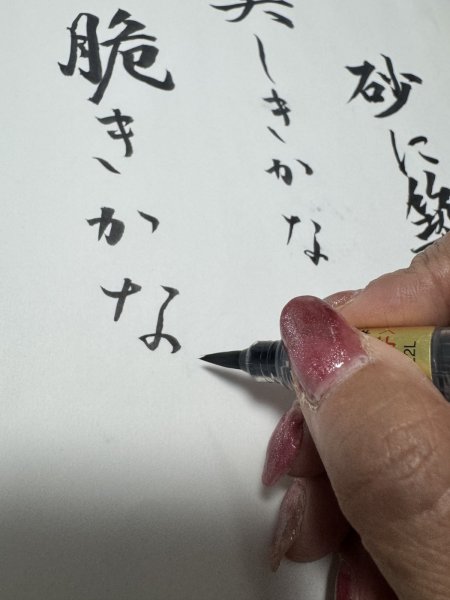 砂に築
美しきかな
脆きかな